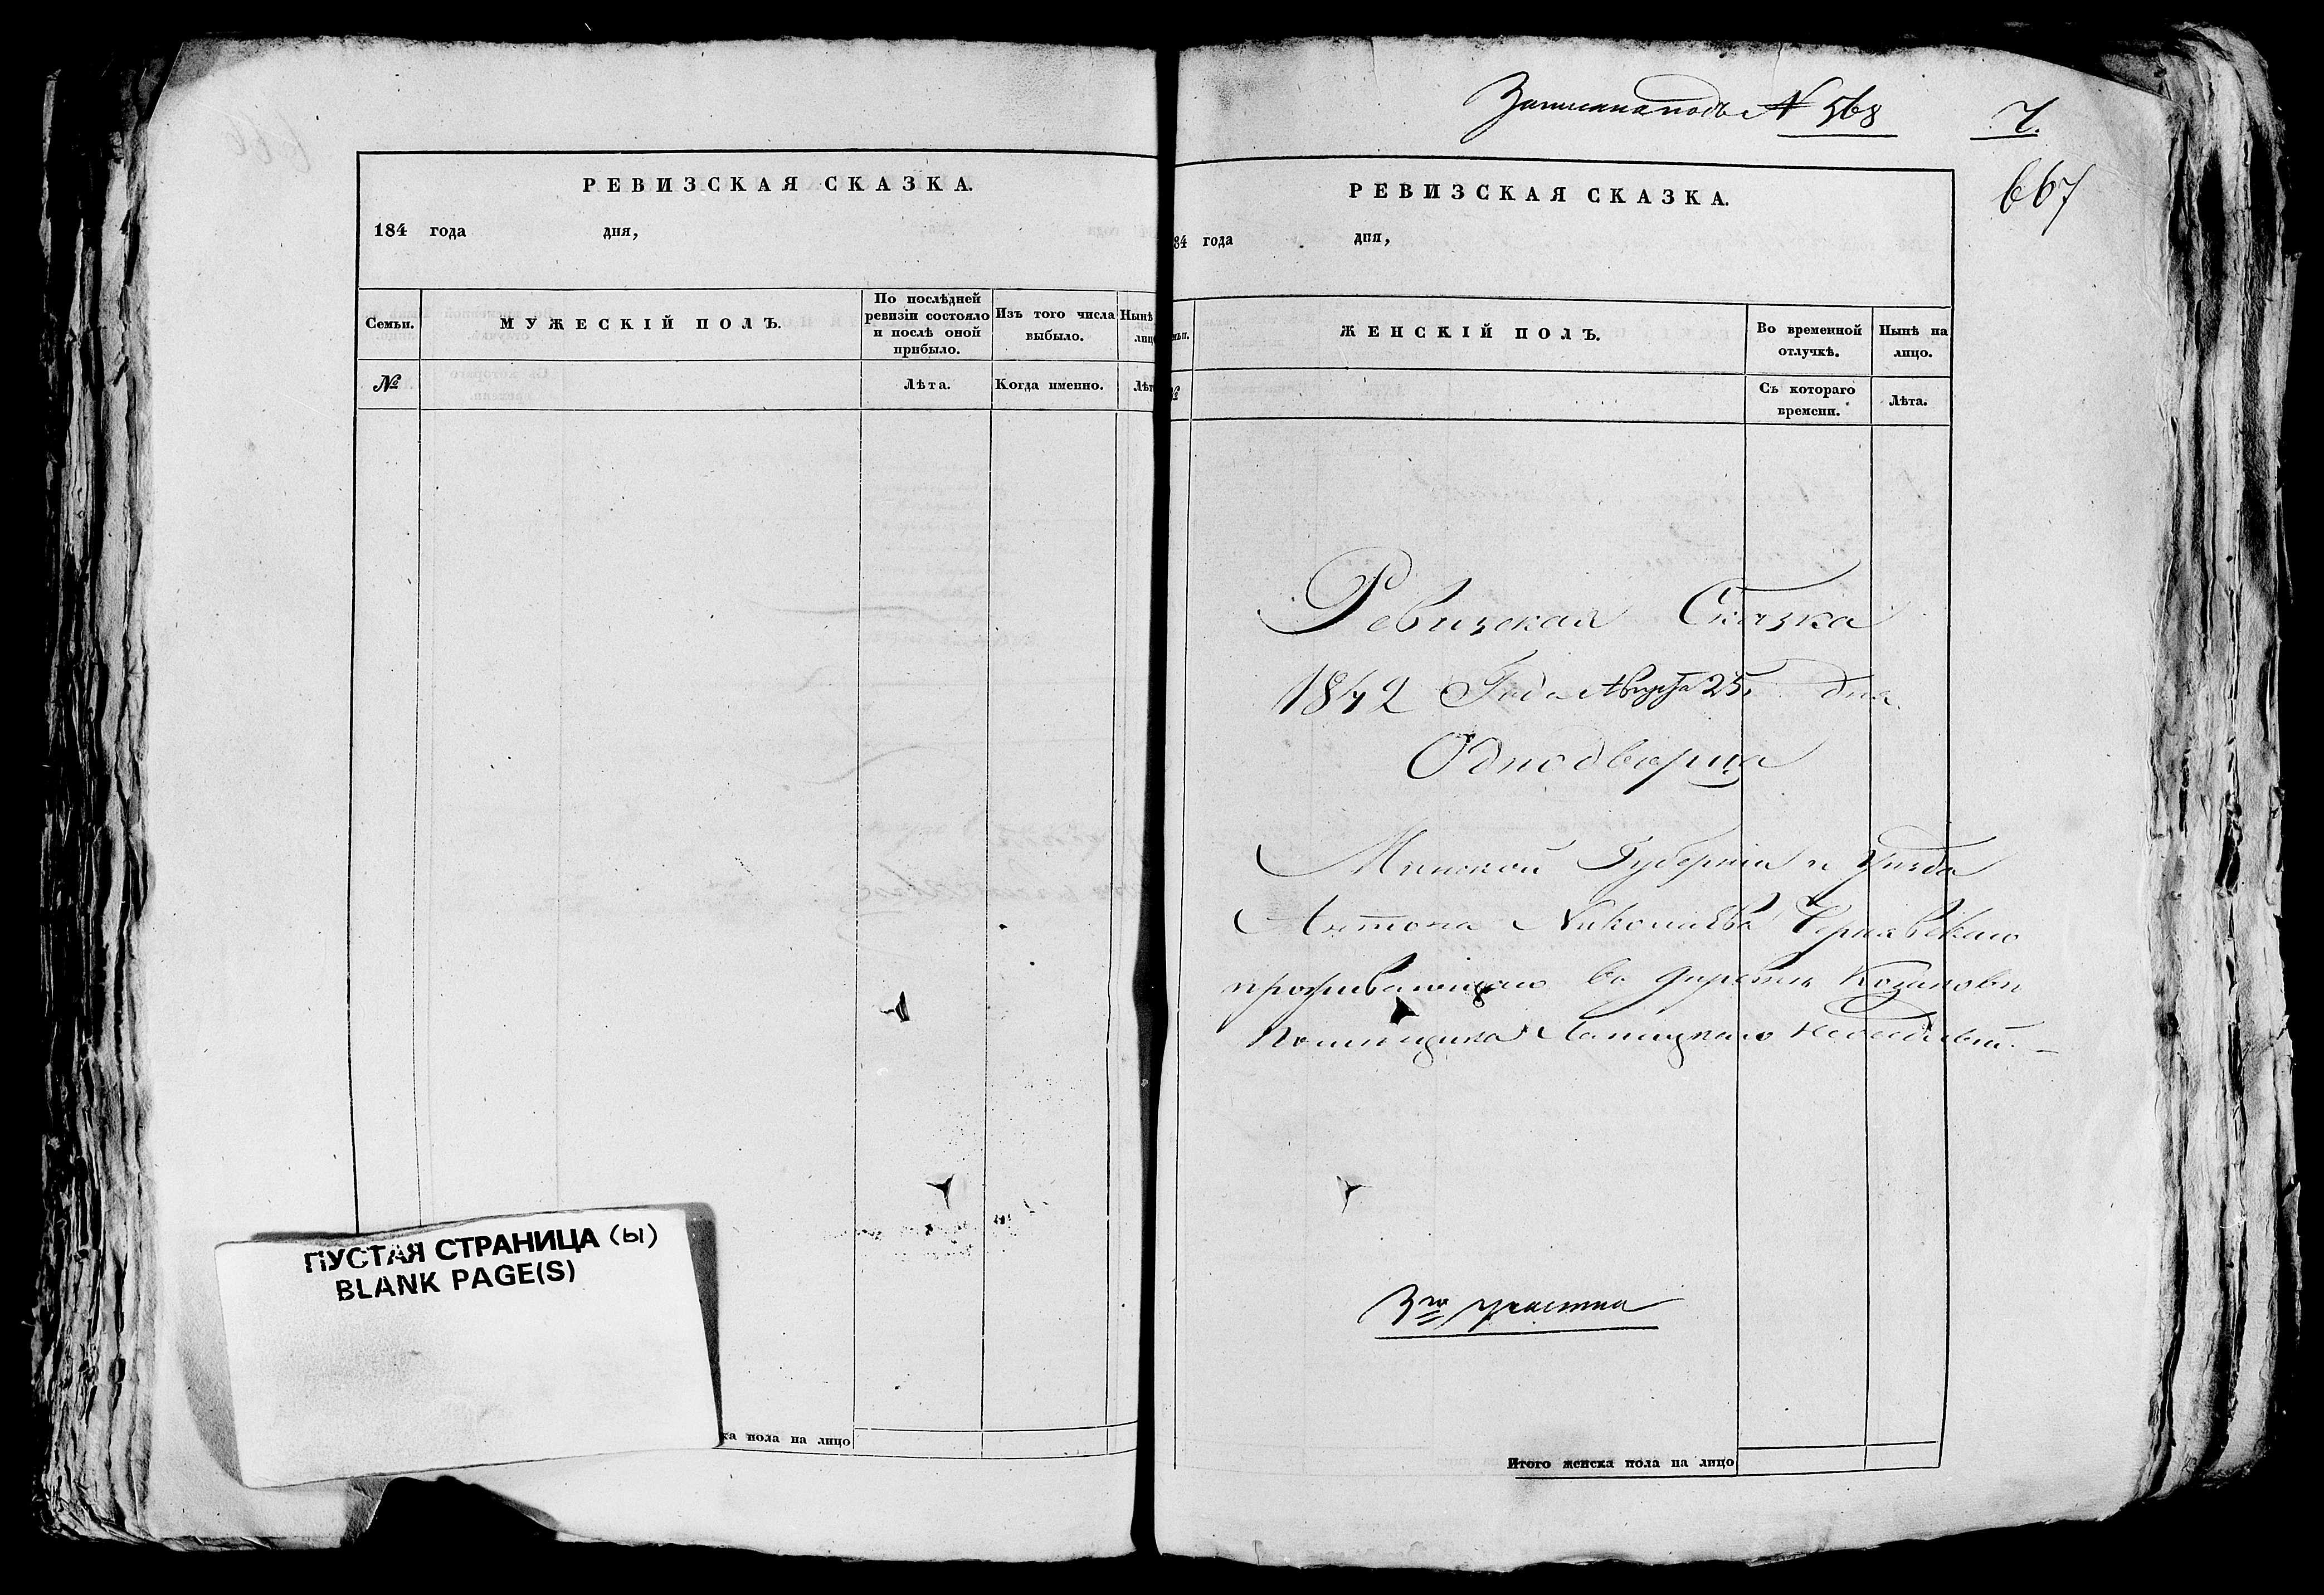 РЕВИЗСКАЯ СКАЗКА.
184 года дня,
Семьи.
МУЖЕСКІЙ ПОЛЪ.
По послѣдней
ревизіи состояло
и послѣ оной
прибыло.
Изъ того числа
выбыло.
Нынѣ
лиц
№
Лѣта.
Когда именно.
Лѣт
ка пола на лицо
ПУСТАЯ СТРАНИЦА (Ы)
BLANK PAGE(S)
Записана подъ № 568
7.
667
РЕВИЗСКАЯ СКАЗКА.
84 года дня,
мьи.
ЖЕНСКІЙ ПОЛЪ.
Во временной
отлучкѣ.
Нынѣ на
лицо.
№
Съ котораго
времени.
Лѣта.
Ревизская Сказка
1842 Года Августа 25 дня
Однодворца
Минской Губерніи и Уѣзда
Антона Николаева Чернявскаго
проживающаго въ деревнѣ
Помещика
3го участка
Итого женска пола на лицо